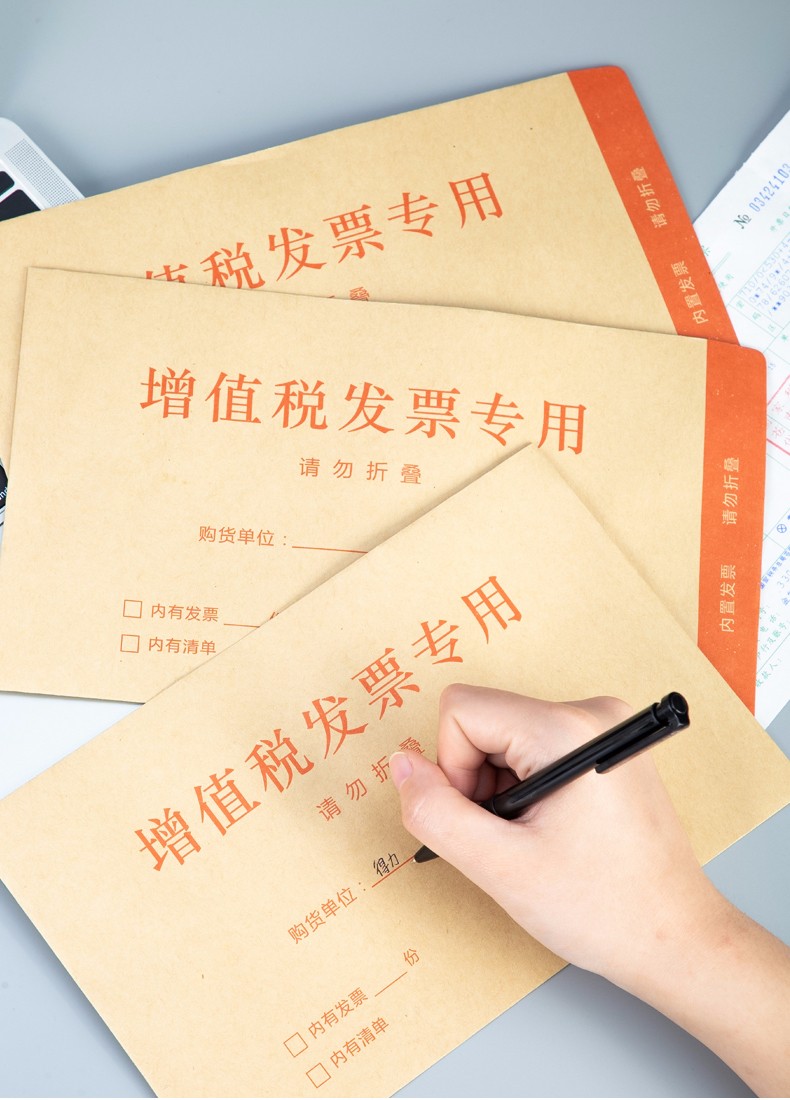 值税发票专用
请勿折叠
内置发票
增值税发票专用
请勿折叠
购货单位：
内有发票
内有清单
请勿折叠
内置发票
增值税发票专用
请勿折叠
购货单位：得力
内有发票____份
内有清单
№ 03424103